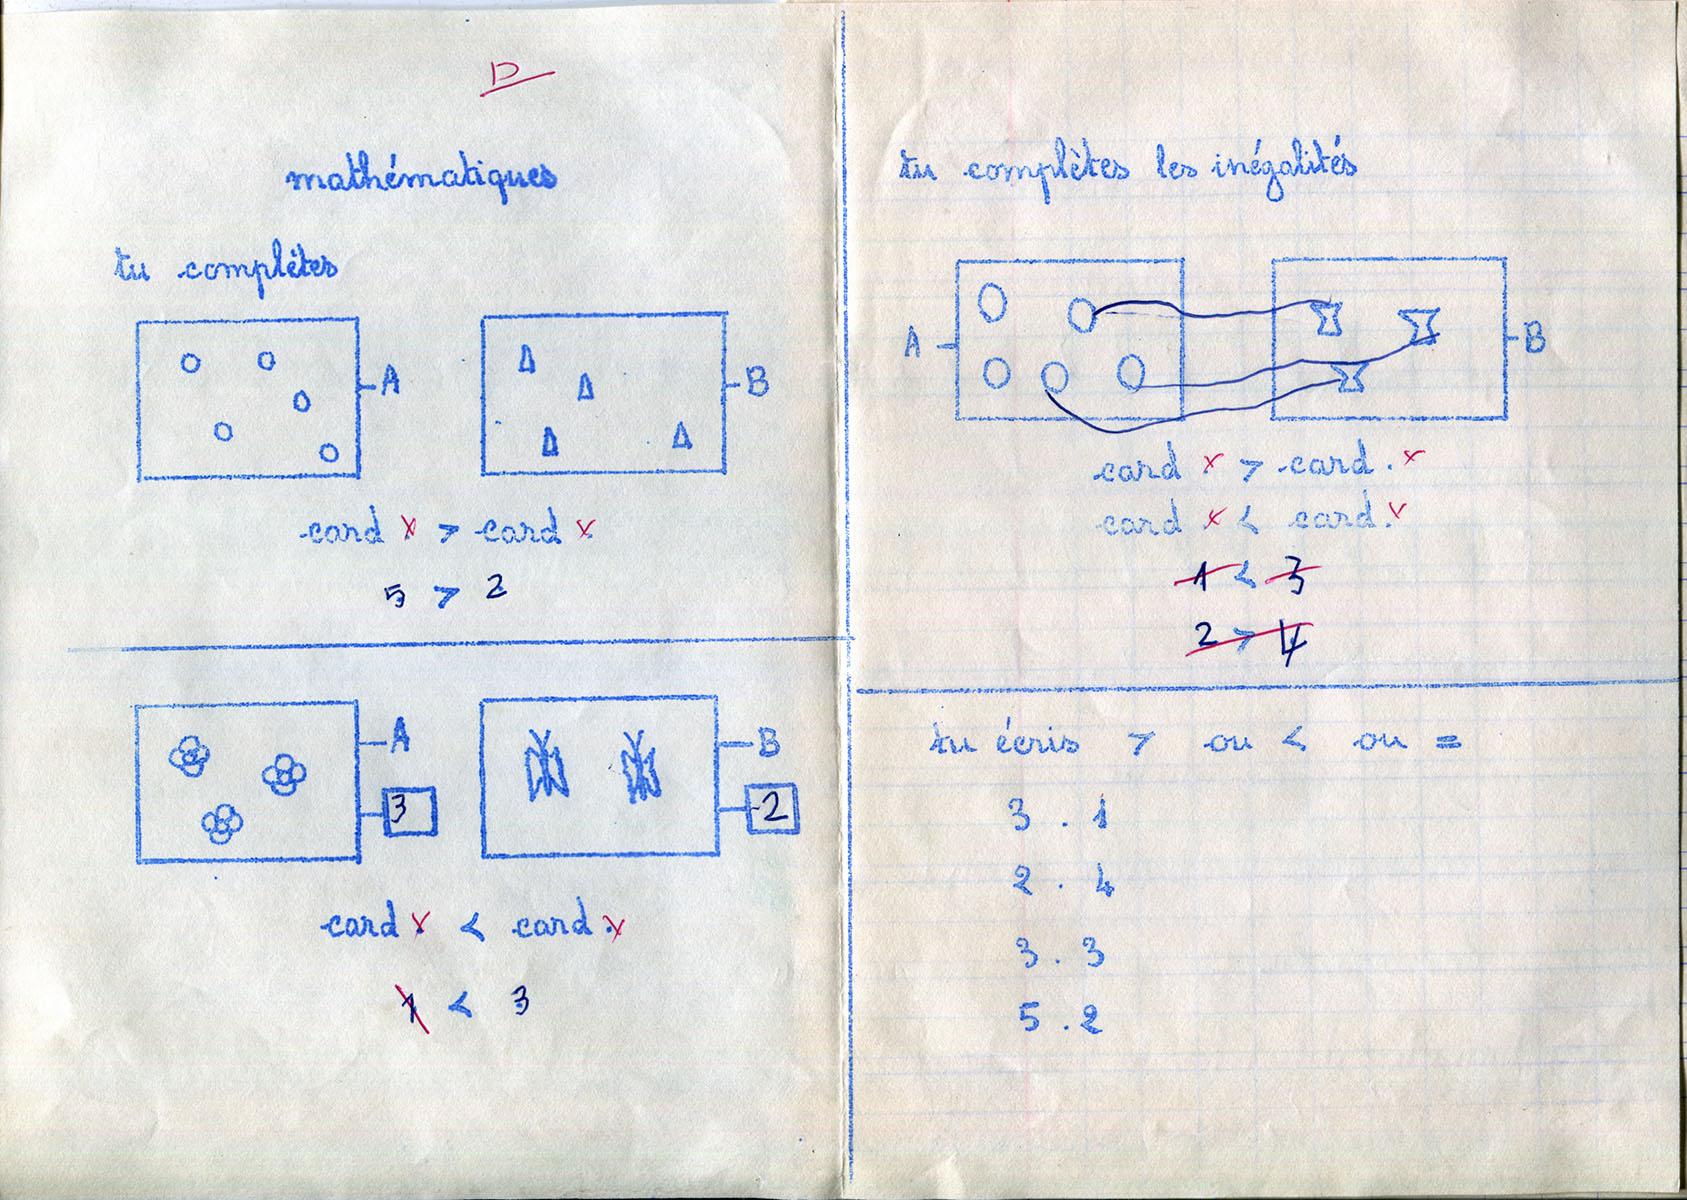 D
mathématiques
tu complètes
A
B
card x > card x
5 > 2
A
3
B
2
card x < card x
1 < 3
tu complètes les inégalités
A
B
card x > card . x
card x < card . x
1 < 3
2 > 4
tu écris > ou < ou =
3 . 1
2 . 4
3 . 3
5 . 2